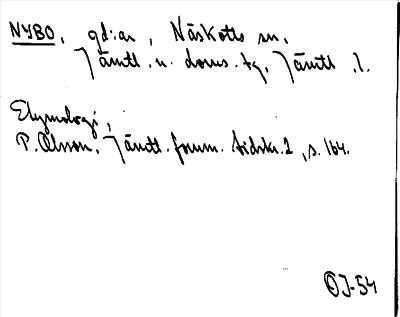 NYBO, gd:ar, Näskotts sn,
Jämtl. n. doms. tg, Jämtl. l.
Etymologi;
P. Olsson, Jämtl. fornm. tidskr. 2, s. 164.
OJ-54